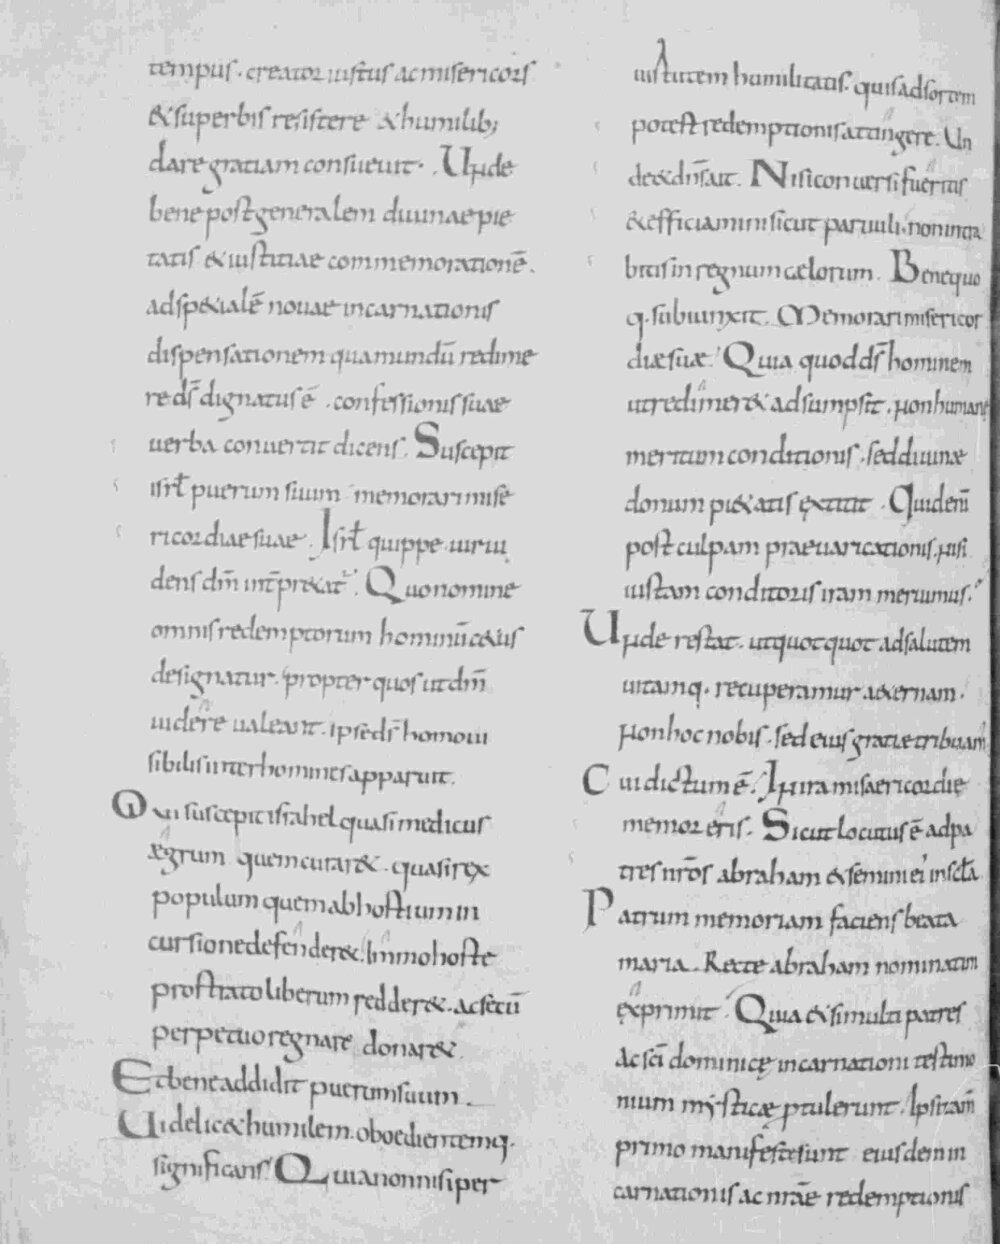 tempus. creator iustus ac misericors
& superbis resistere & humilib;
dare gratiam consueuit. Unde
bene post generalem diuinae pie
tatis & iustitiae commemorationē.
ad sp&ialē nouae incarnationis
dispensationem qua mundū redime
re ds̄ dignatus ē. confessionis suae
uerba conuertit dicens. Suscepit
isrł puerum suum memorari mise
ricordiae suae. Isrł quippe uir ui
dens dm̄ int̄pr&at̄. Quo nomine
omnis redemptorum hominū c&us
designatur. propter quos ut dm̄
uidere ualeant. ipse ds̄ homo ui
sibilis inter homines apparuit.
Qui suscepit israhel quasi medicus
ægrum quem curar&. quasi rex
populum quem ab hostium in
cursione defender&. Immo hoste
prostrato liberum redder&. ac secū
perpetuo regnare donar&.
Et bene addidit puerum suum.
Uidelic& humilem. oboedientemq.
significans. Quia non nisi per
uirtutem humilitatis. quis ad sortem
potest redemptionis attingere. Un
de & dn̄s ait. Nisi conuersi fueritis
& efficiamini sicut paruuli. non intra
bitis in regnum cælorum. Bene quo
q. subiunxit. Memorari misericor
diæ suæ. Quia quod ds̄ hominem
ut redimer& adsumpsit. non humanę
meritum conditionis. sed diuinæ
donum pi&atis extitit. Quid enī
post culpam praeuaricationis. nisi
iustam conditoris iram meruimus.
Unde restat. ut quotquot ad salutem
uitamq. recuperamur aeternam.
non hoc nobis. sed eius gratiæ tribuam
Cui dictum ē. In ira misaericordię
memor eris. Sicut locutus ē ad pa
tres nr̄os abraham & semini ei' in scła
Patrum memoriam faciens beata
maria. Recte abraham nominatim
exprimit. Quia & si multi patres
ac sc̄i dominicę incarnationi testimo
nium mysticæ ptulerunt. Ipsi tam̄
primo manifeste sunt eiusdem in
carnationis ac nr̄ae redemptionis